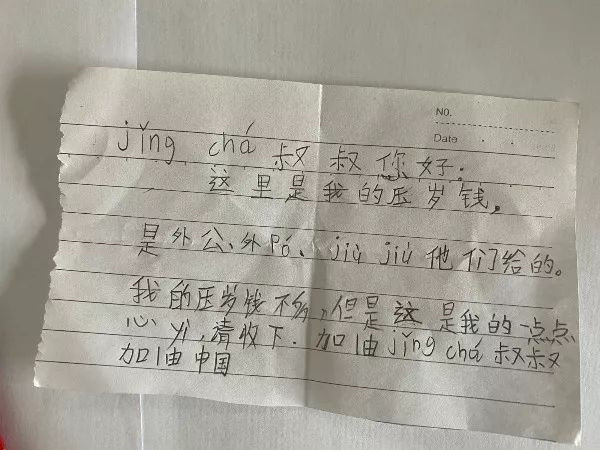 NO.
Date
jǐng chá 叔叔您好:
这里是我的压岁钱,
是外公、外Pó、jiù jiù 他们给的。
我的压岁钱不多,但是这是我的一点点
心yì,请收下.加油jǐng chá 叔叔
加油中国